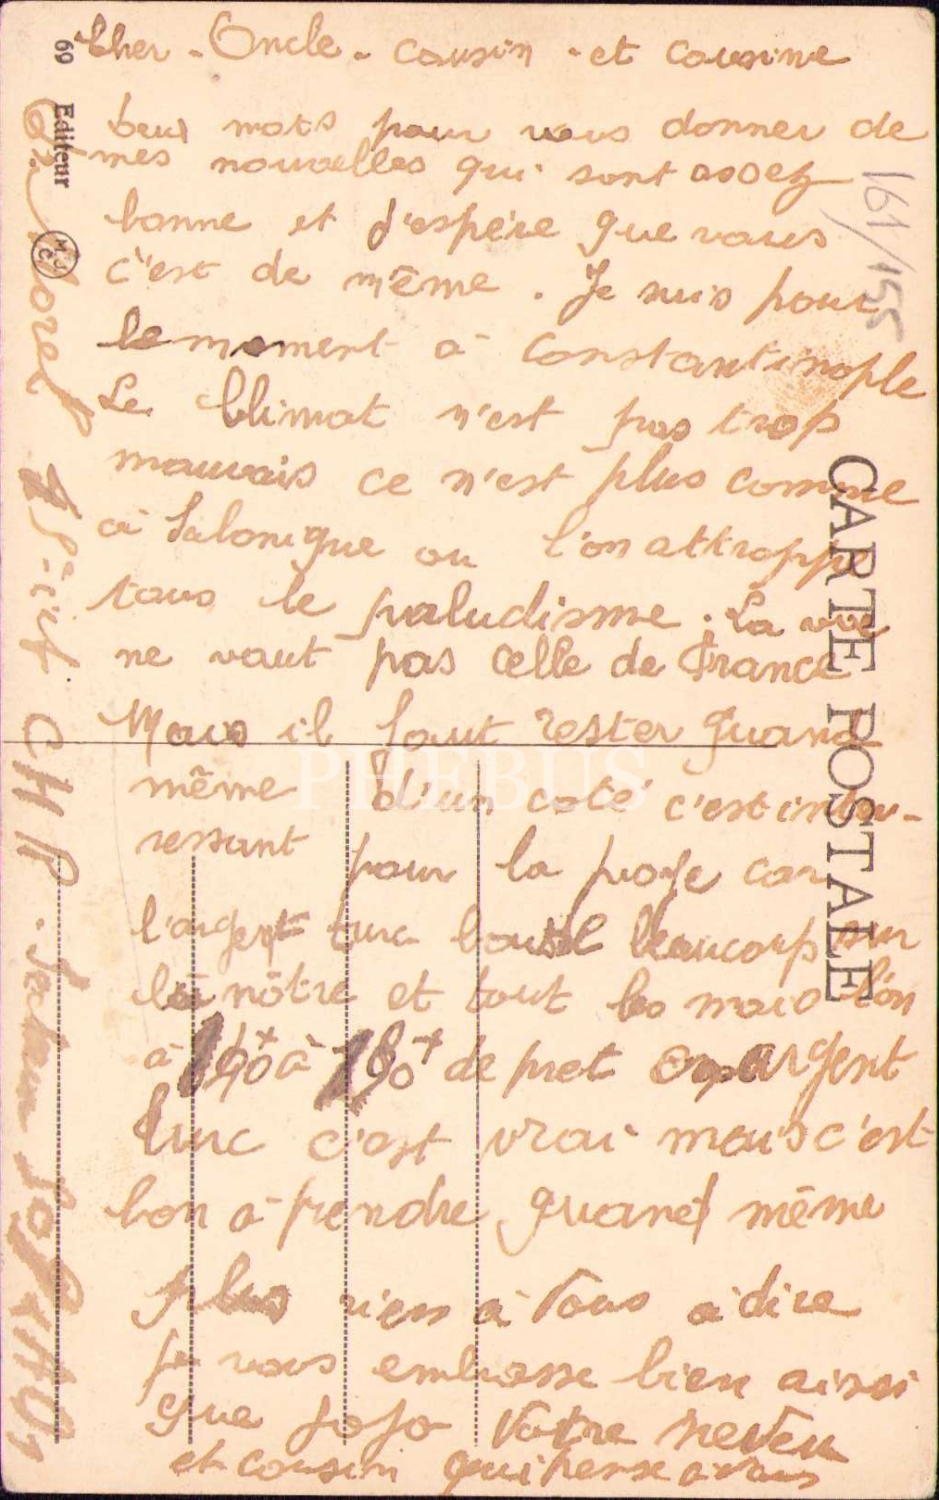 Cher - Oncle - cousin - et cousine
Deux mots pour vous donner de
mes nouvelles qui sont assez
bonne et j'espère que vous
c'est de même. Je suis pour
le moment à Constantinople
Le Climat n'est pas trop
mauvais ce n'est plus comme
à Salonique ou l'on attrappe
tous le paludisme. La vie
ne vaut pas celle de France
Mais il faut rester quand
même d'un coté c'est inter-
ressant pour la paye car
l'argent turc beaucoup sur
la nôtre et tout les mois l'on
à 190 à de pret argent
turc c'est vrai mais c'est
bon a prendre quand même
Plus rien a Vous a dire
Je vous embrasse bien ainsi
que Jojo Votre neveu
et cousin qui pense a vous
CARTE POSTALE
69 Editeur MJC
161/155
PHEBUS